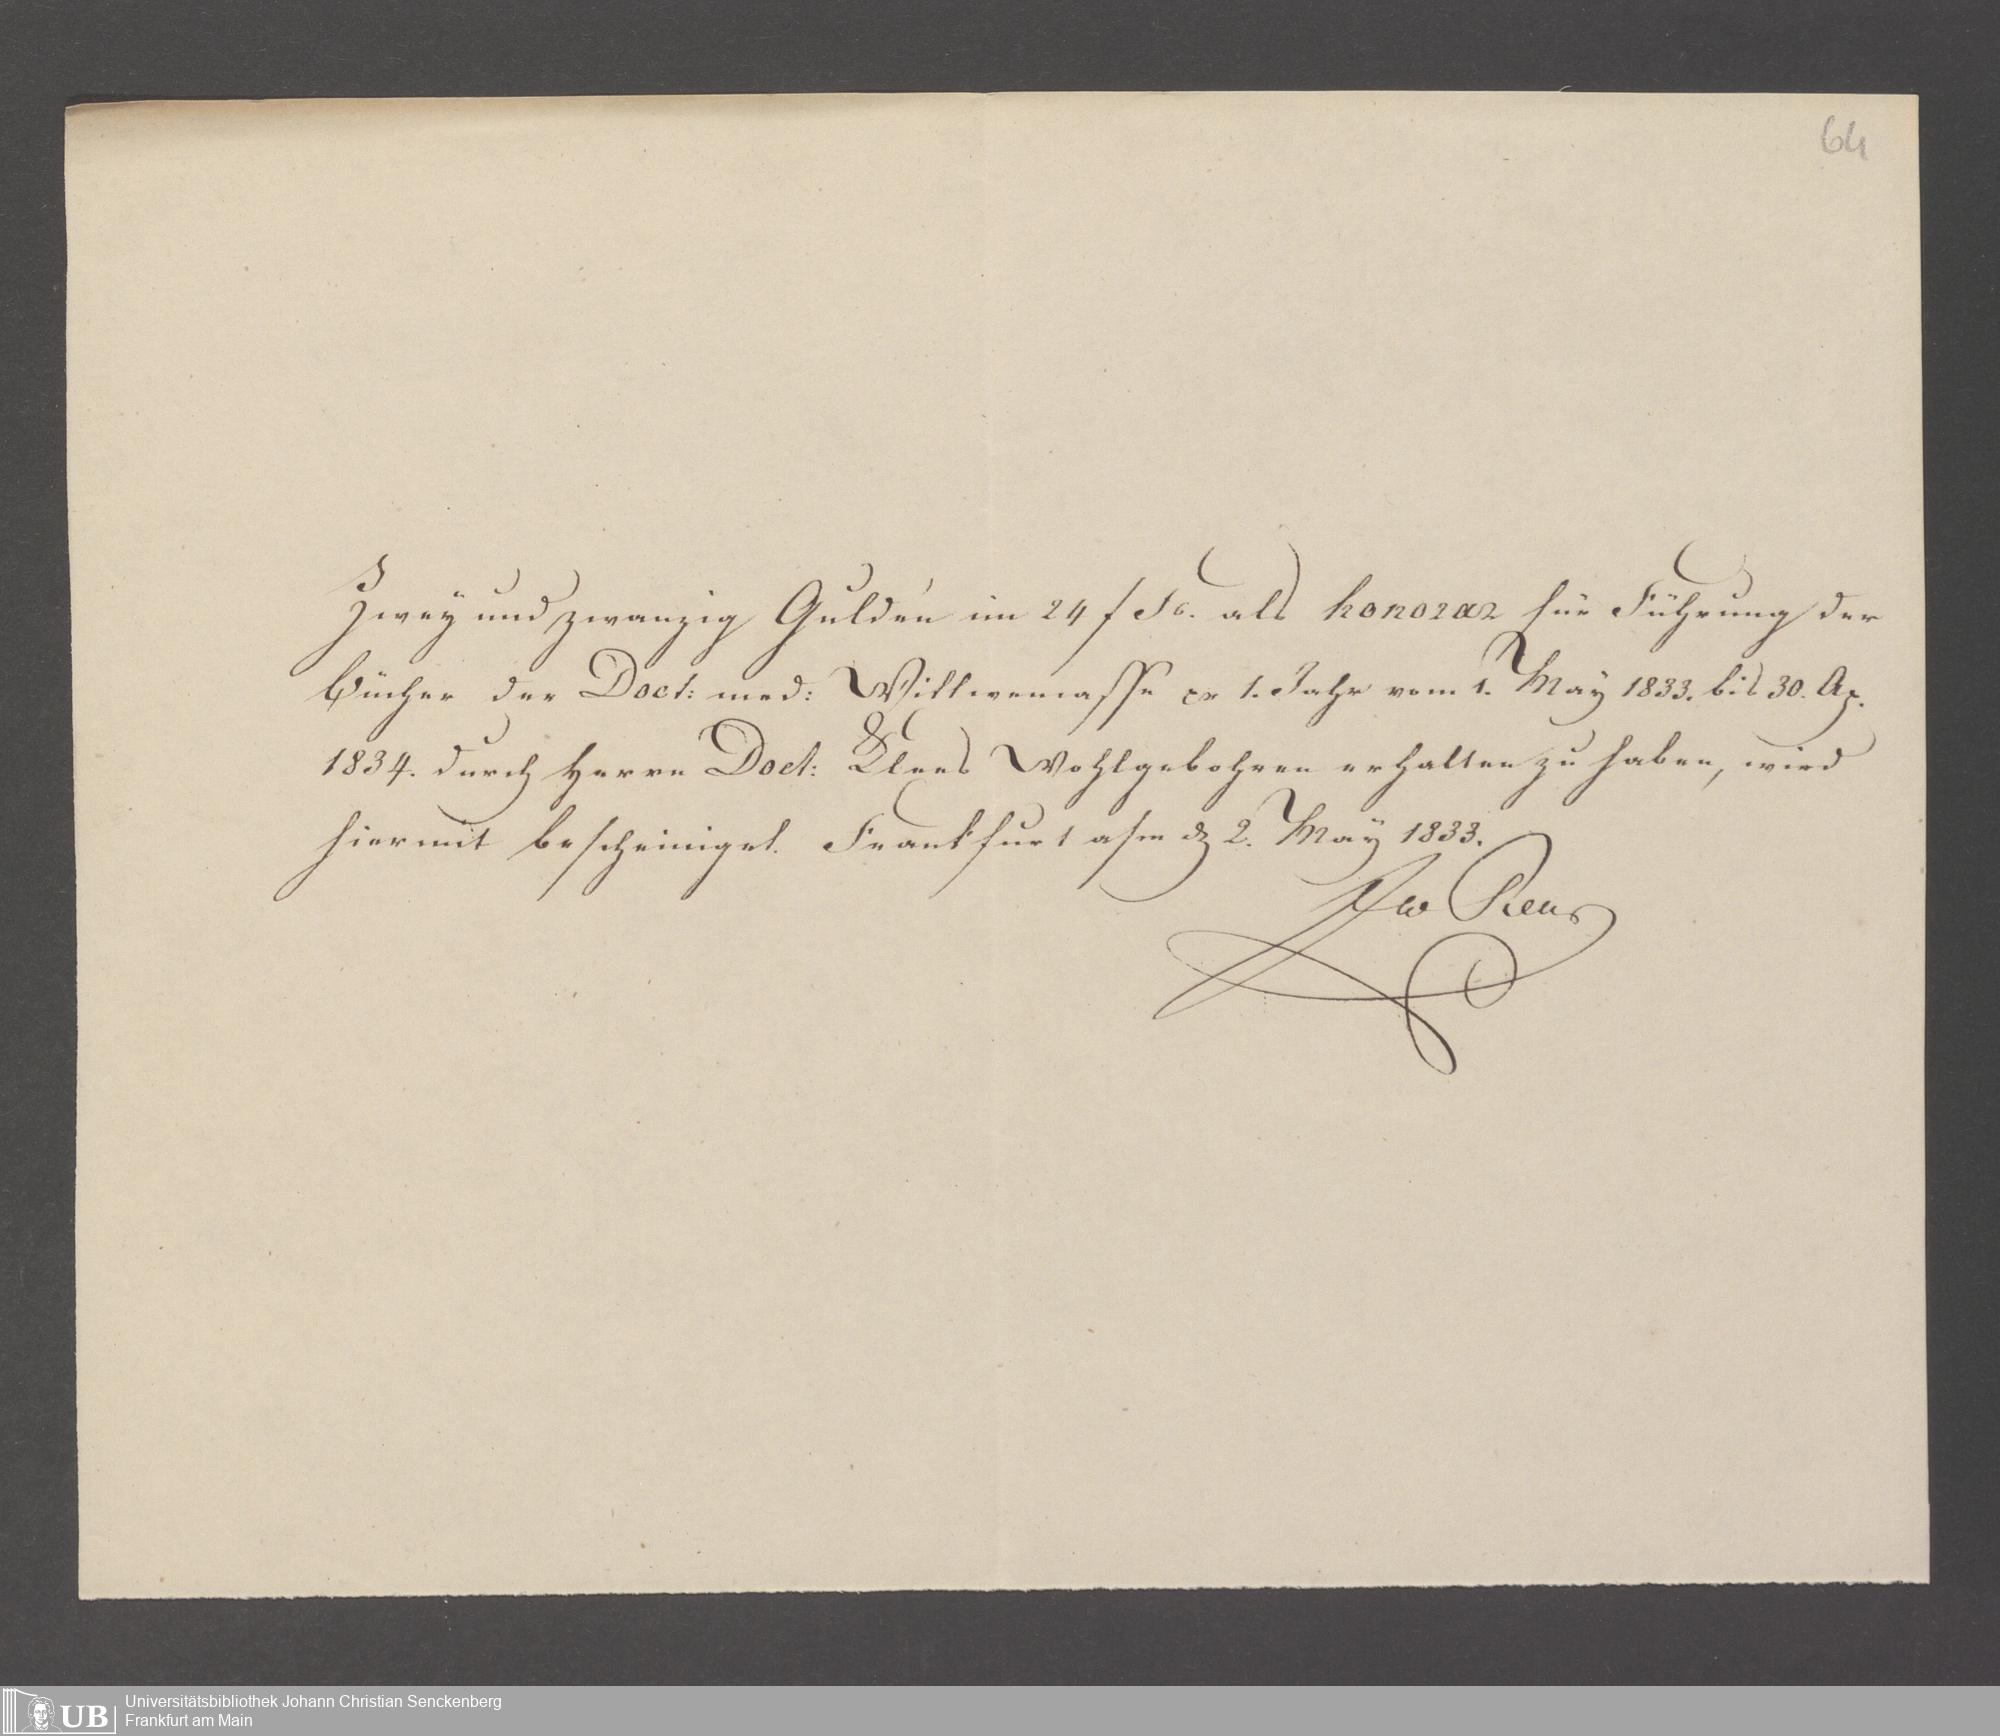 64
Zwey und zwanzig Gulden im 24 f Fs. als honorar für Führung der
Bücher der Doct: med: Wittwemasse pr 1. Jahr vom 1. May 1833. bis 30. Ap.
1834. durch Herrn Doct: Kloss Wohlgebohren erhalten zu haben, wird
hiermit bescheiniget. Frankfurt a/m d 2. May 1833.
UB
Universitätsbibliothek Johann Christian Senckenberg
Frankfurt am Main